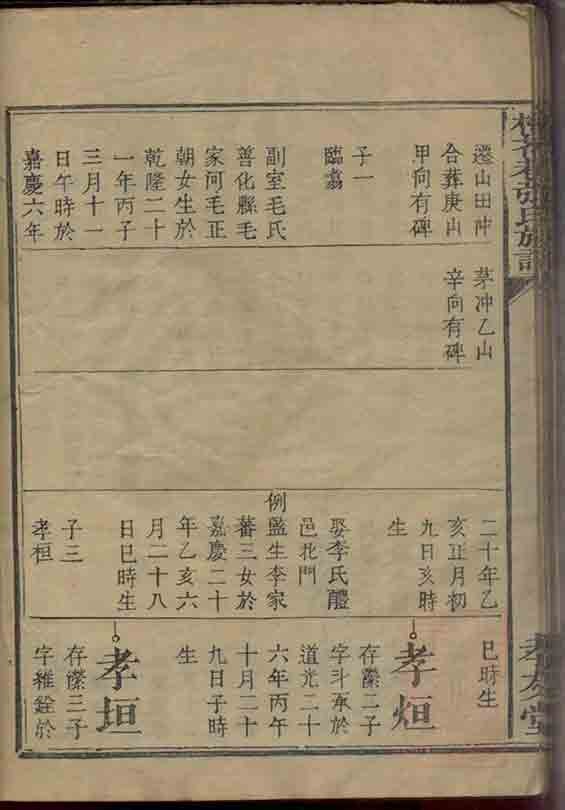 遷山田冲
合葬庚山
甲向有碑
子一
臨翥
副室毛氏
善化縣毛
家河毛正
朝女生於
乾隆二十
一年丙子
三月十一
日午時於
嘉慶六年
茅冲乙山
辛向有碑
二十年乙
亥正月初
九日亥時
生
娶李氏醴
邑北門
例監生李家
蕃三女於
嘉慶二十
年乙亥六
月二十八
日巳時生
子三
孝桓
巳時生
孝烜
存濚二子
字斗承於
道光二十
六年丙午
十月二十
九日子時
生
孝垣
存濚三子
字維銓於
孝友堂